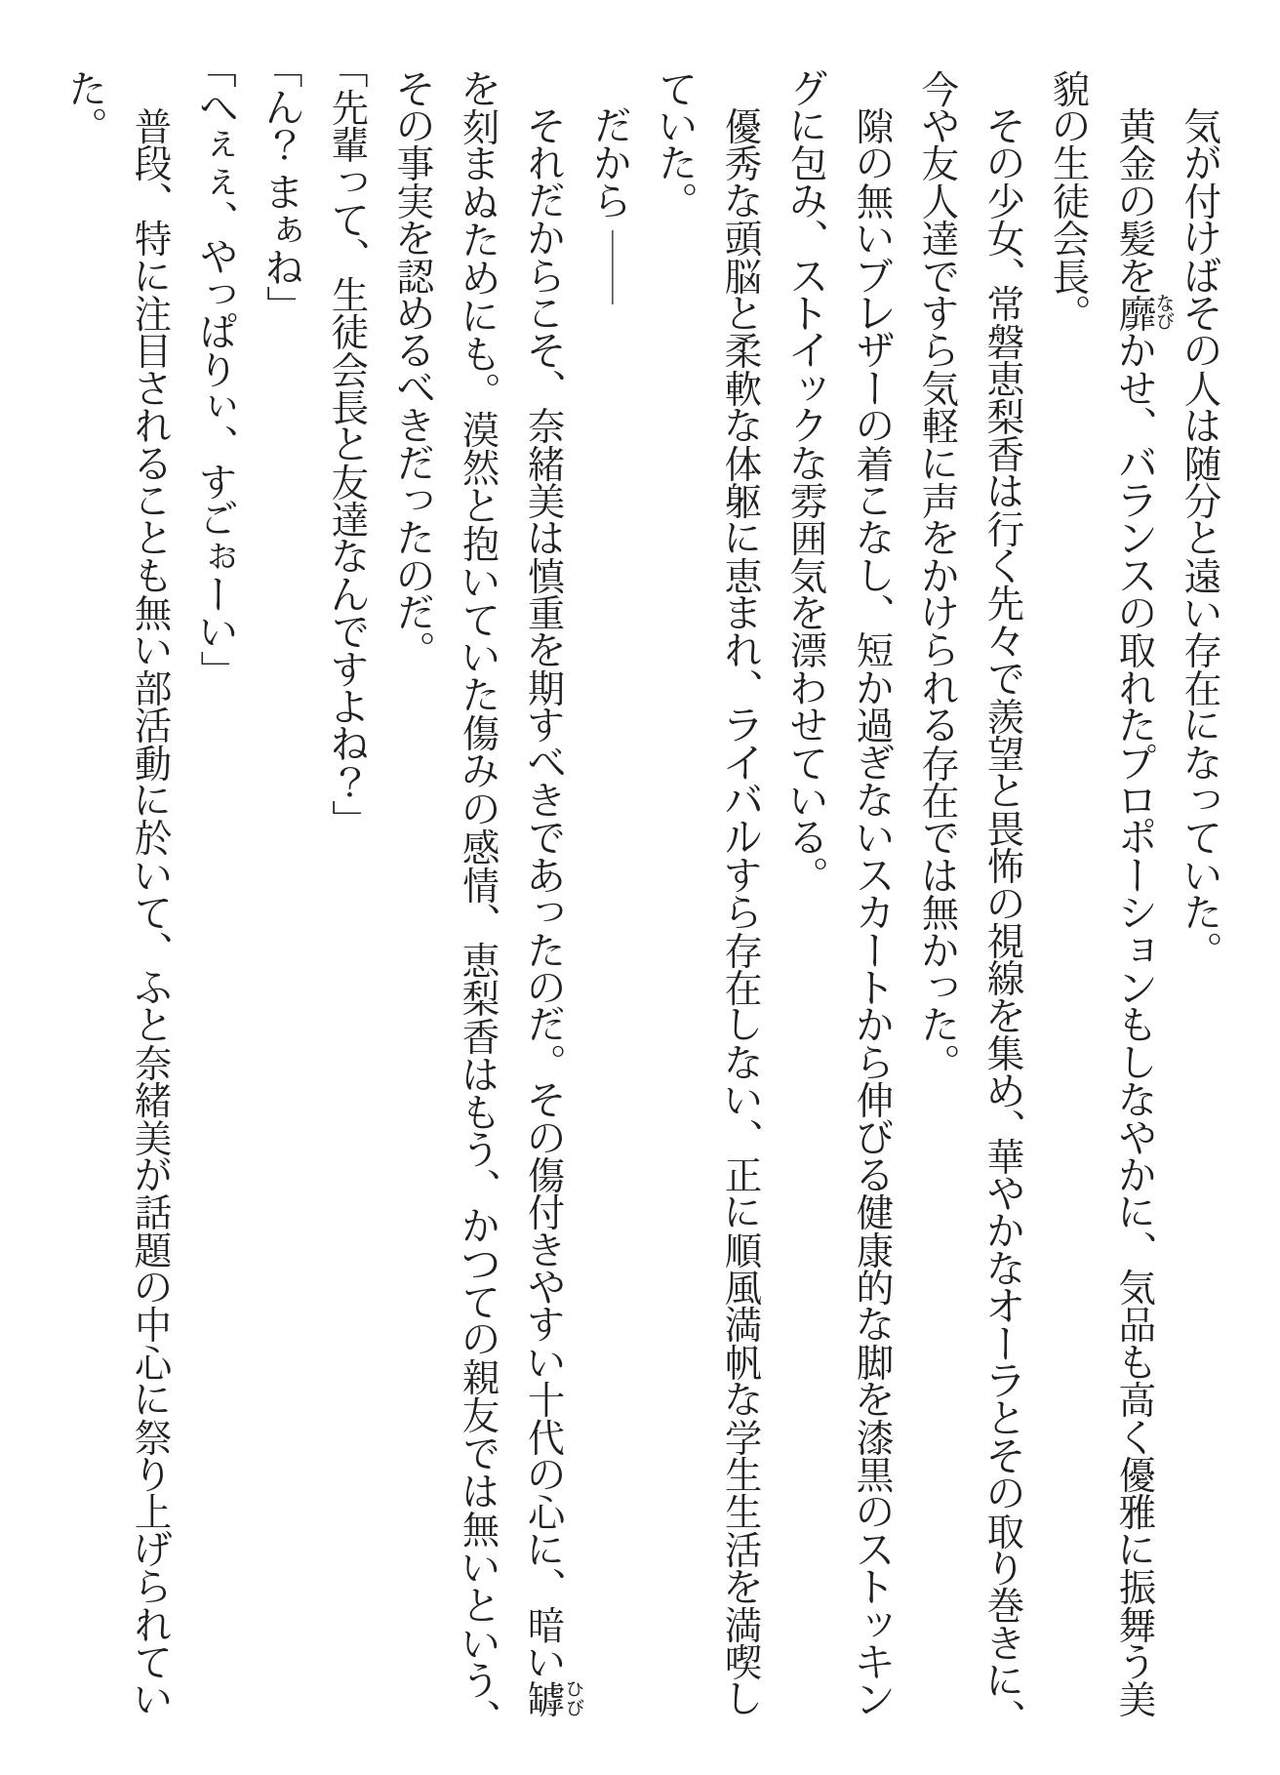 気が付けばその人は随分と遠い存在になっていた。
黄金の髪を靡かせ、バランスの取れたプロポーションもしなやかに、気品も高く優雅に振舞う美
貌の生徒会長。
その少女、常磐恵梨香は行く先々で羨望と畏怖の視線を集め、華やかなオーラとその取り巻きに、
今や友人達ですら気軽に声をかけられる存在では無かった。
隙の無いブレザーの着こなし、短か過ぎないスカートから伸びる健康的な脚を漆黒のストッキン
グに包み、ストイックな雰囲気を漂わせている。
優秀な頭脳と柔軟な体躯に恵まれ、ライバルすら存在しない、正に順風満帆な学生生活を満喫し
ていた。
だから――
それだからこそ、奈緒美は慎重を期すべきであったのだ。その傷付きやすい十代の心に、暗い罅
を刻まぬためにも。漠然と抱いていた傷みの感情、恵梨香はもう、かつての親友では無いという、
その事実を認めるべきだったのだ。
「先輩って、生徒会長と友達なんですよね？」
「ん？まぁね」
「へぇぇ、やっぱりぃ、すごぉーい」
普段、特に注目されることも無い部活動に於いて、ふと奈緒美が話題の中心に祭り上げられてい
た。
なび
ひび